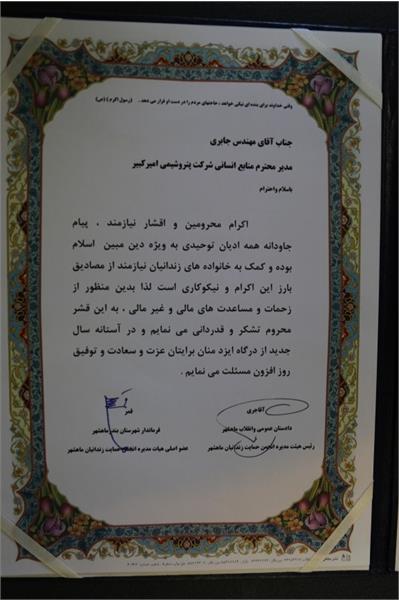 وقتی خداوند برای بنده ای نیکی خواهد ، حاجتهای مردم را در دست او قرار می دهد... (رسول اکرم) (ص)
جناب آقای مهندس جابری
مدیر محترم منابع انسانی شرکت پتروشیمی امیرکبیر
باسلام واحترام
اکرام محرومین و اقشار نیازمند ، پیام
جاودانه همه ادیان توحیدی به ویژه دین مبین اسلام
بوده و کمک به خانواده های زندانیان نیازمند از مصادیق
بارز این اکرام و نیکوکاری است لذا بدین منظور از
زحمات و مساعدت های مالی و غیر مالی ، به این قشر
محروم تشکر و قدردانی می نمایم و در آستانه سال
جدید از درگاه ایزد منان برایتان عزت و سعادت و توفیق
روز افزون مسئلت می نمایم .
آقاجری
دادستان عمومی وانقلاب ماهشهر
رئیس هیئت مدیره انجمن حمایت زندانیان ماهشهر
قمر
فرماندار شهرستان بندرماهشهر
عضو اصلی هیات مدیره انجمن حمایت زندانیان ماهشهر